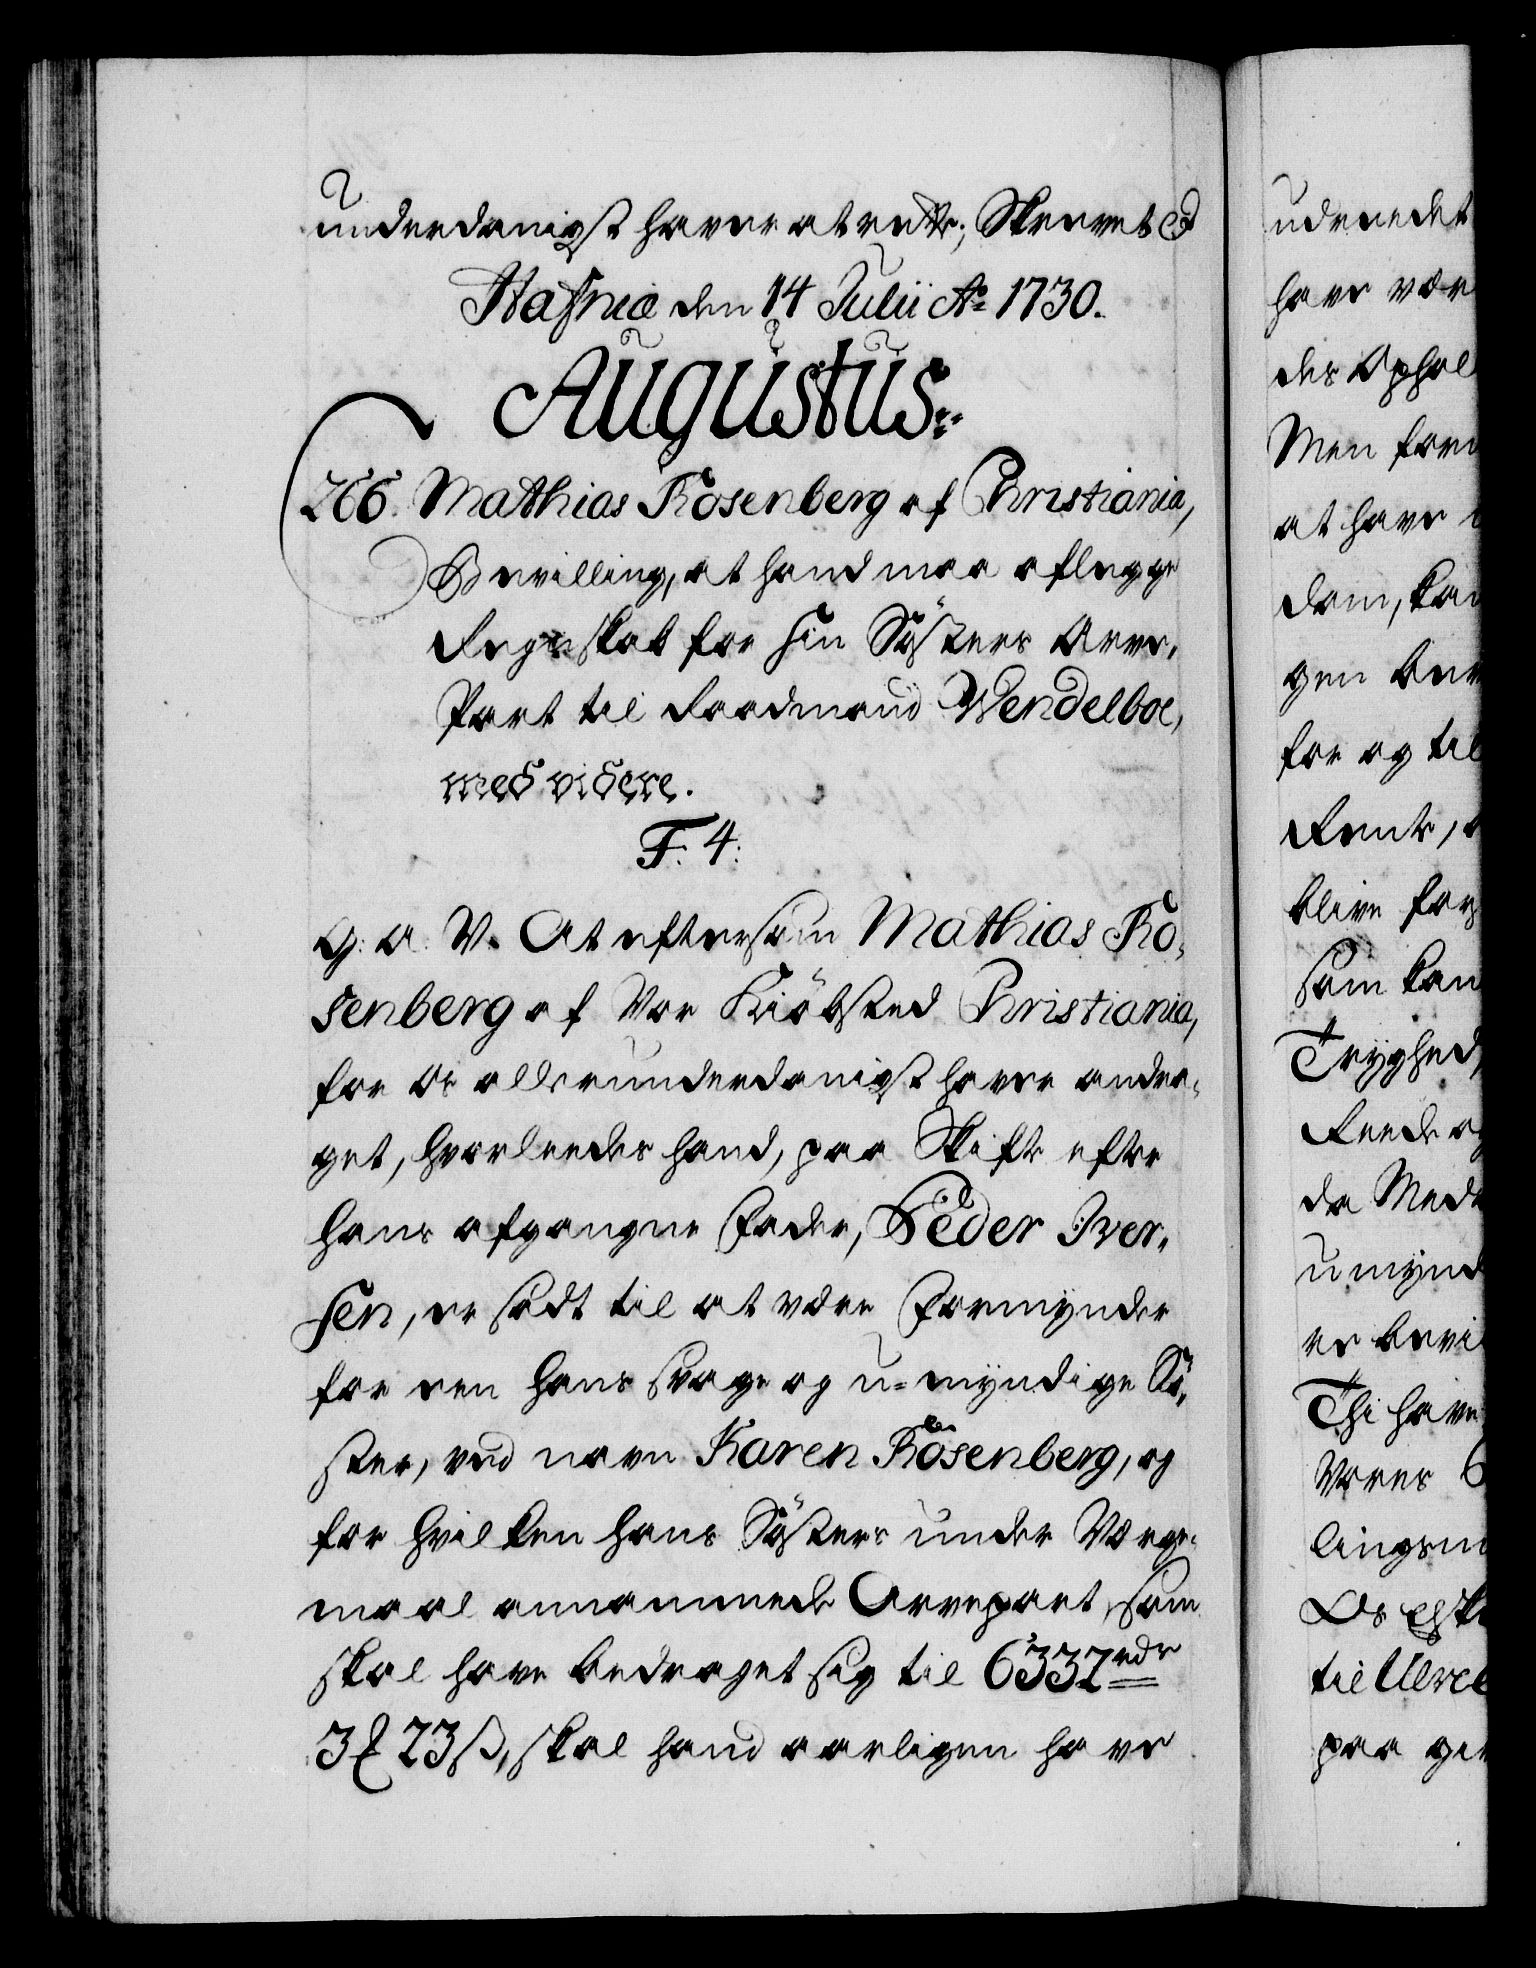 underdanigst haver at rette; Skrevet
Hafniæ den 14 Julii Ao 1730.
Augustus.
266. Mathias Rosenberg af Christiania,
Bevilling, at hand maa aflegge
Regnskab for sin Sösters Arve-
Part til Raadmand Wendelboe,
med videre.
F: 4:
G: A: V. At eftersom Mathias Ro-
senberg af Vor Kiöbsted Christiania,
for Os allerunderdanigst haver andra-
get, hvorleedes hand, paa Skifte efter
hans afgangne Fader, Peder Iver-
sen, er sadt til at være Formynder
for een hans svage og u-myndige Sö-
ster, ved navn Karen Rosenberg, og
for hvilken hans Sösters under Værge-
maal annammede Arvepart, som
skal have bedraget sig til 6332 rdr
3 23 ß, skal hand aarligen have
udreedet
have vær
des Ophol
Men form
at have
dom, kan
gen
for og til
Rente,
blive
som kan
Tryghed,
Reede og
da Med
umynd
er bevi
Thi have
Vores
lingsm
Os
til
paa